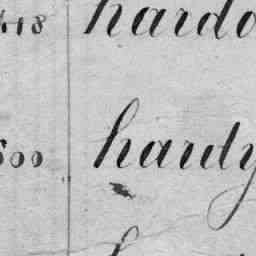 418 hardo
600 hardy